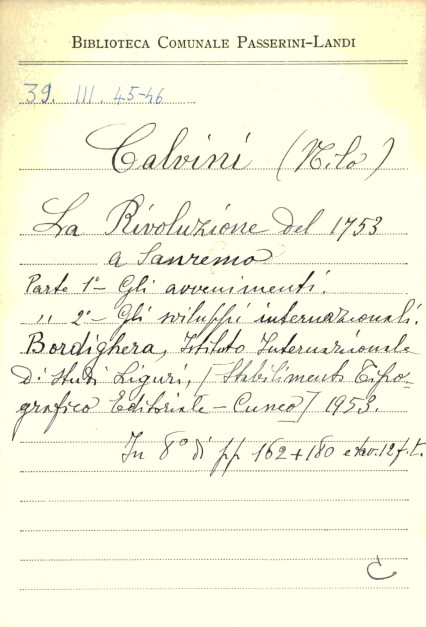 BIBLIOTECA COMUNALE PASSERINI-LANDI
39. III. 45-46
Calvini (Nilo)
La Rivoluzione del 1753
a Sanremo
Parte 1° - Gli avvenimenti.
" 2° - Gli sviluppi internazionali.
Bordighera, Istituto Internazionale
di Studi Liguri, [Stabilimento Tipo-
grafico Editoriale - Cuneo] 1953.
In 8° di pp 162 + 180 e tav. 12 f. t.
C